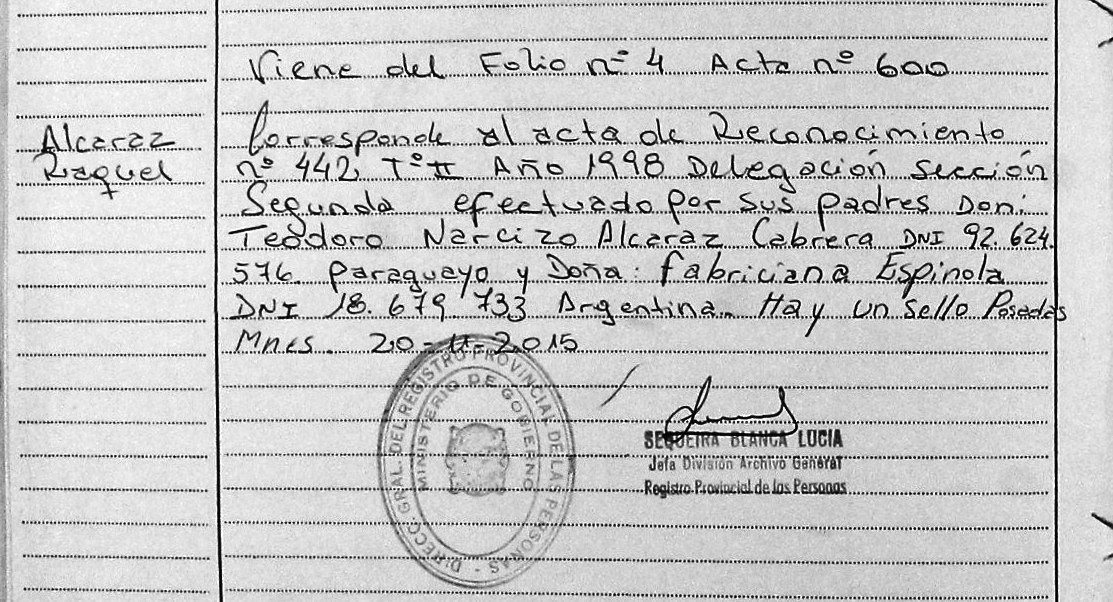 Viene del Folio nº 4 Acta nº 600
Alcaraz
Raquel
Corresponde al acta de Reconocimiento
nº 442 Tº II Año 1998 Delegación Sección
Segunda efectuado por sus padres Don:
Teodoro Narcizo Alcaraz Cabrera DNI 92.624.
576. Paraguayo y Doña: Fabriciana Espinola
DNI 18.679.733 Argentina. Hay un sello Posadas
Mnes. 20-11-2015
DIRECC. GRAL. DEL REGISTRO PROVINCIAL DE LAS PERSONAS
MINISTERIO DE GOBIERNO
SEQUEIRA BLANCA LUCIA
Jefa División Archivo General
Registro Provincial de las Personas